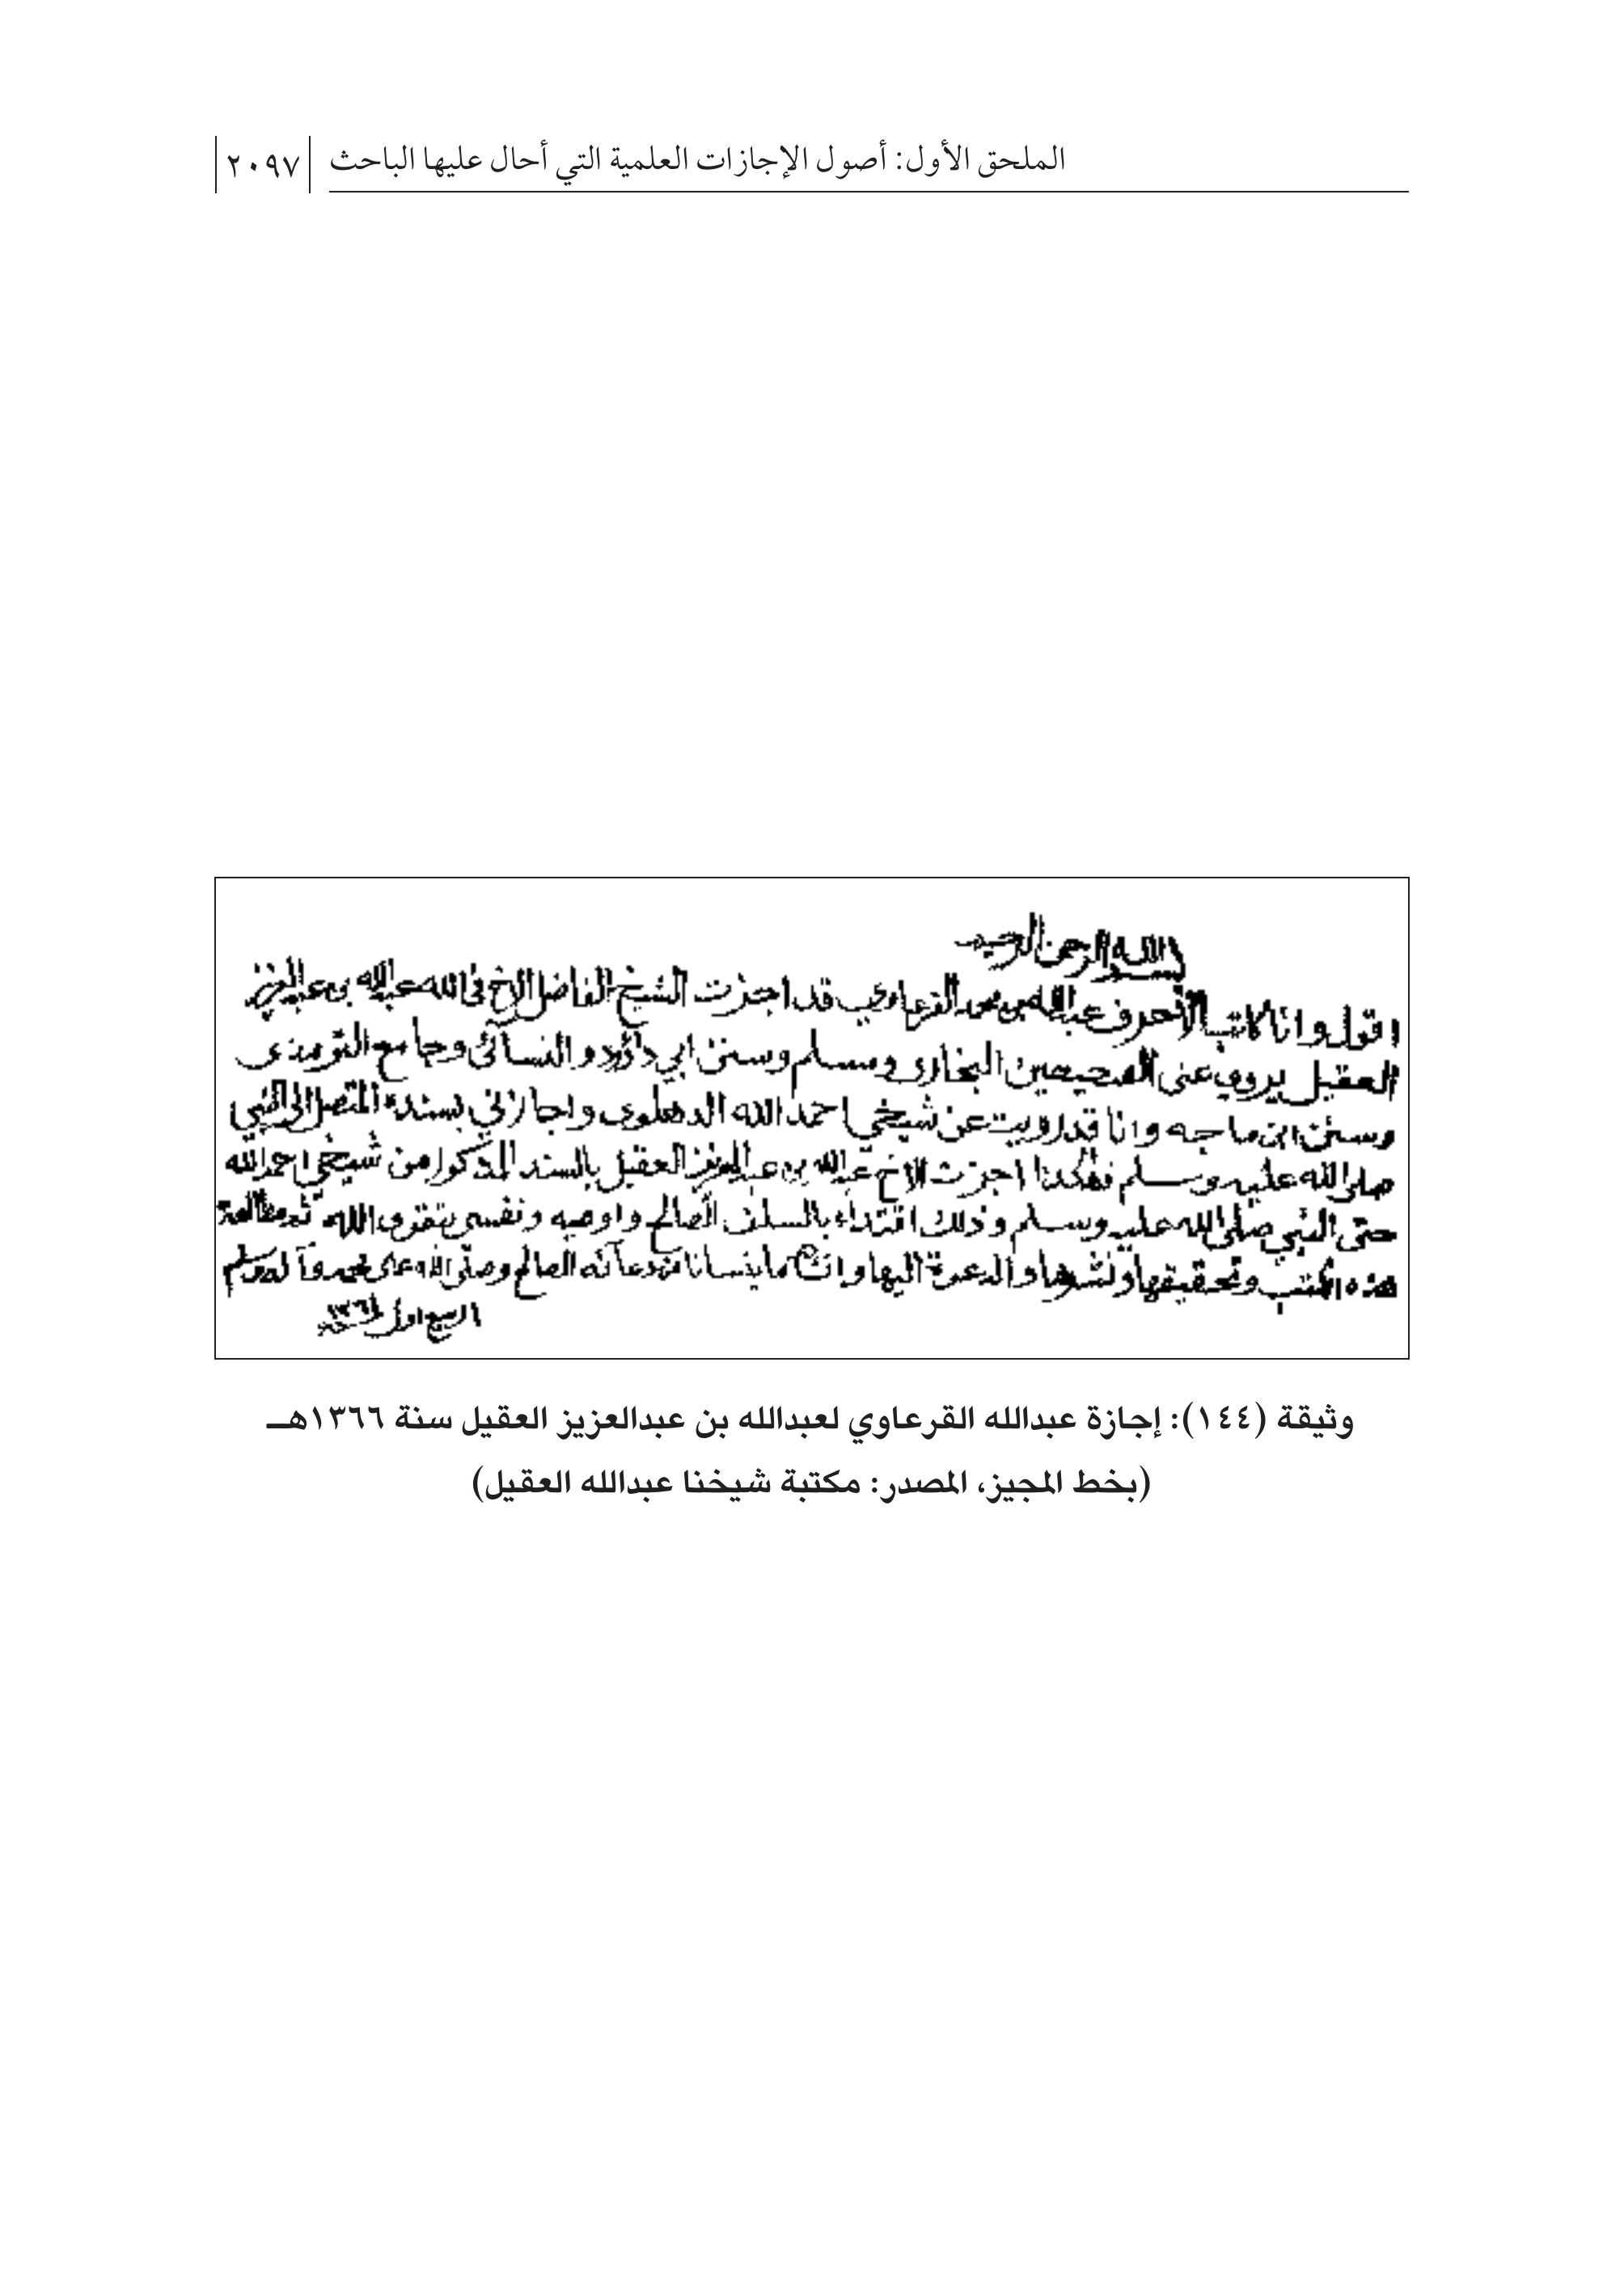 الملحق الأول: أصول الإجازات العلمية التي أحال عليها الباحث ٢٠٩٧
بسم الله الرحمن الرحيم
اقول وانا كاتب الأحرف عبدالله بن محمد القرعاوي قد اجزت الشيخ الفاضل الاخ في الله عبدالله بن عبدالعزيز
العقيل يروي عني الصحيحين البخاري ومسلم وسنن ابي داؤد والنسآئى وجامع الترمذى
وسنن ابن ماجه وانا قد رويت عن شيخي احمد الله الدهلوى واجازني بسنده المتصل الى النبي
صلى الله عليه وسلم فهكذا اجزت الاخ عبدالله بن عبدالعزيز العقيل بالسند المذكور من شيخي احمد الله
حتى النبي صلى الله عليه وسلم وذلك اقتداء بالسلف الصالح واوصيه ونفسي بتقوى الله ثم مطالعة
هذه الكتب وتحقيقها ونشرها والدعوة اليها وان ما ينسانا من دعآئه الصالح وصلى الله على محمد وآله وسلم
ربيع اول ١٣٦٦
وثيقة (١٤٤): إجازة عبدالله القرعاوي لعبدالله بن عبدالعزيز العقيل سنة ١٣٦٦هـ
(بخط المجيز، المصدر: مكتبة شيخنا عبدالله العقيل)